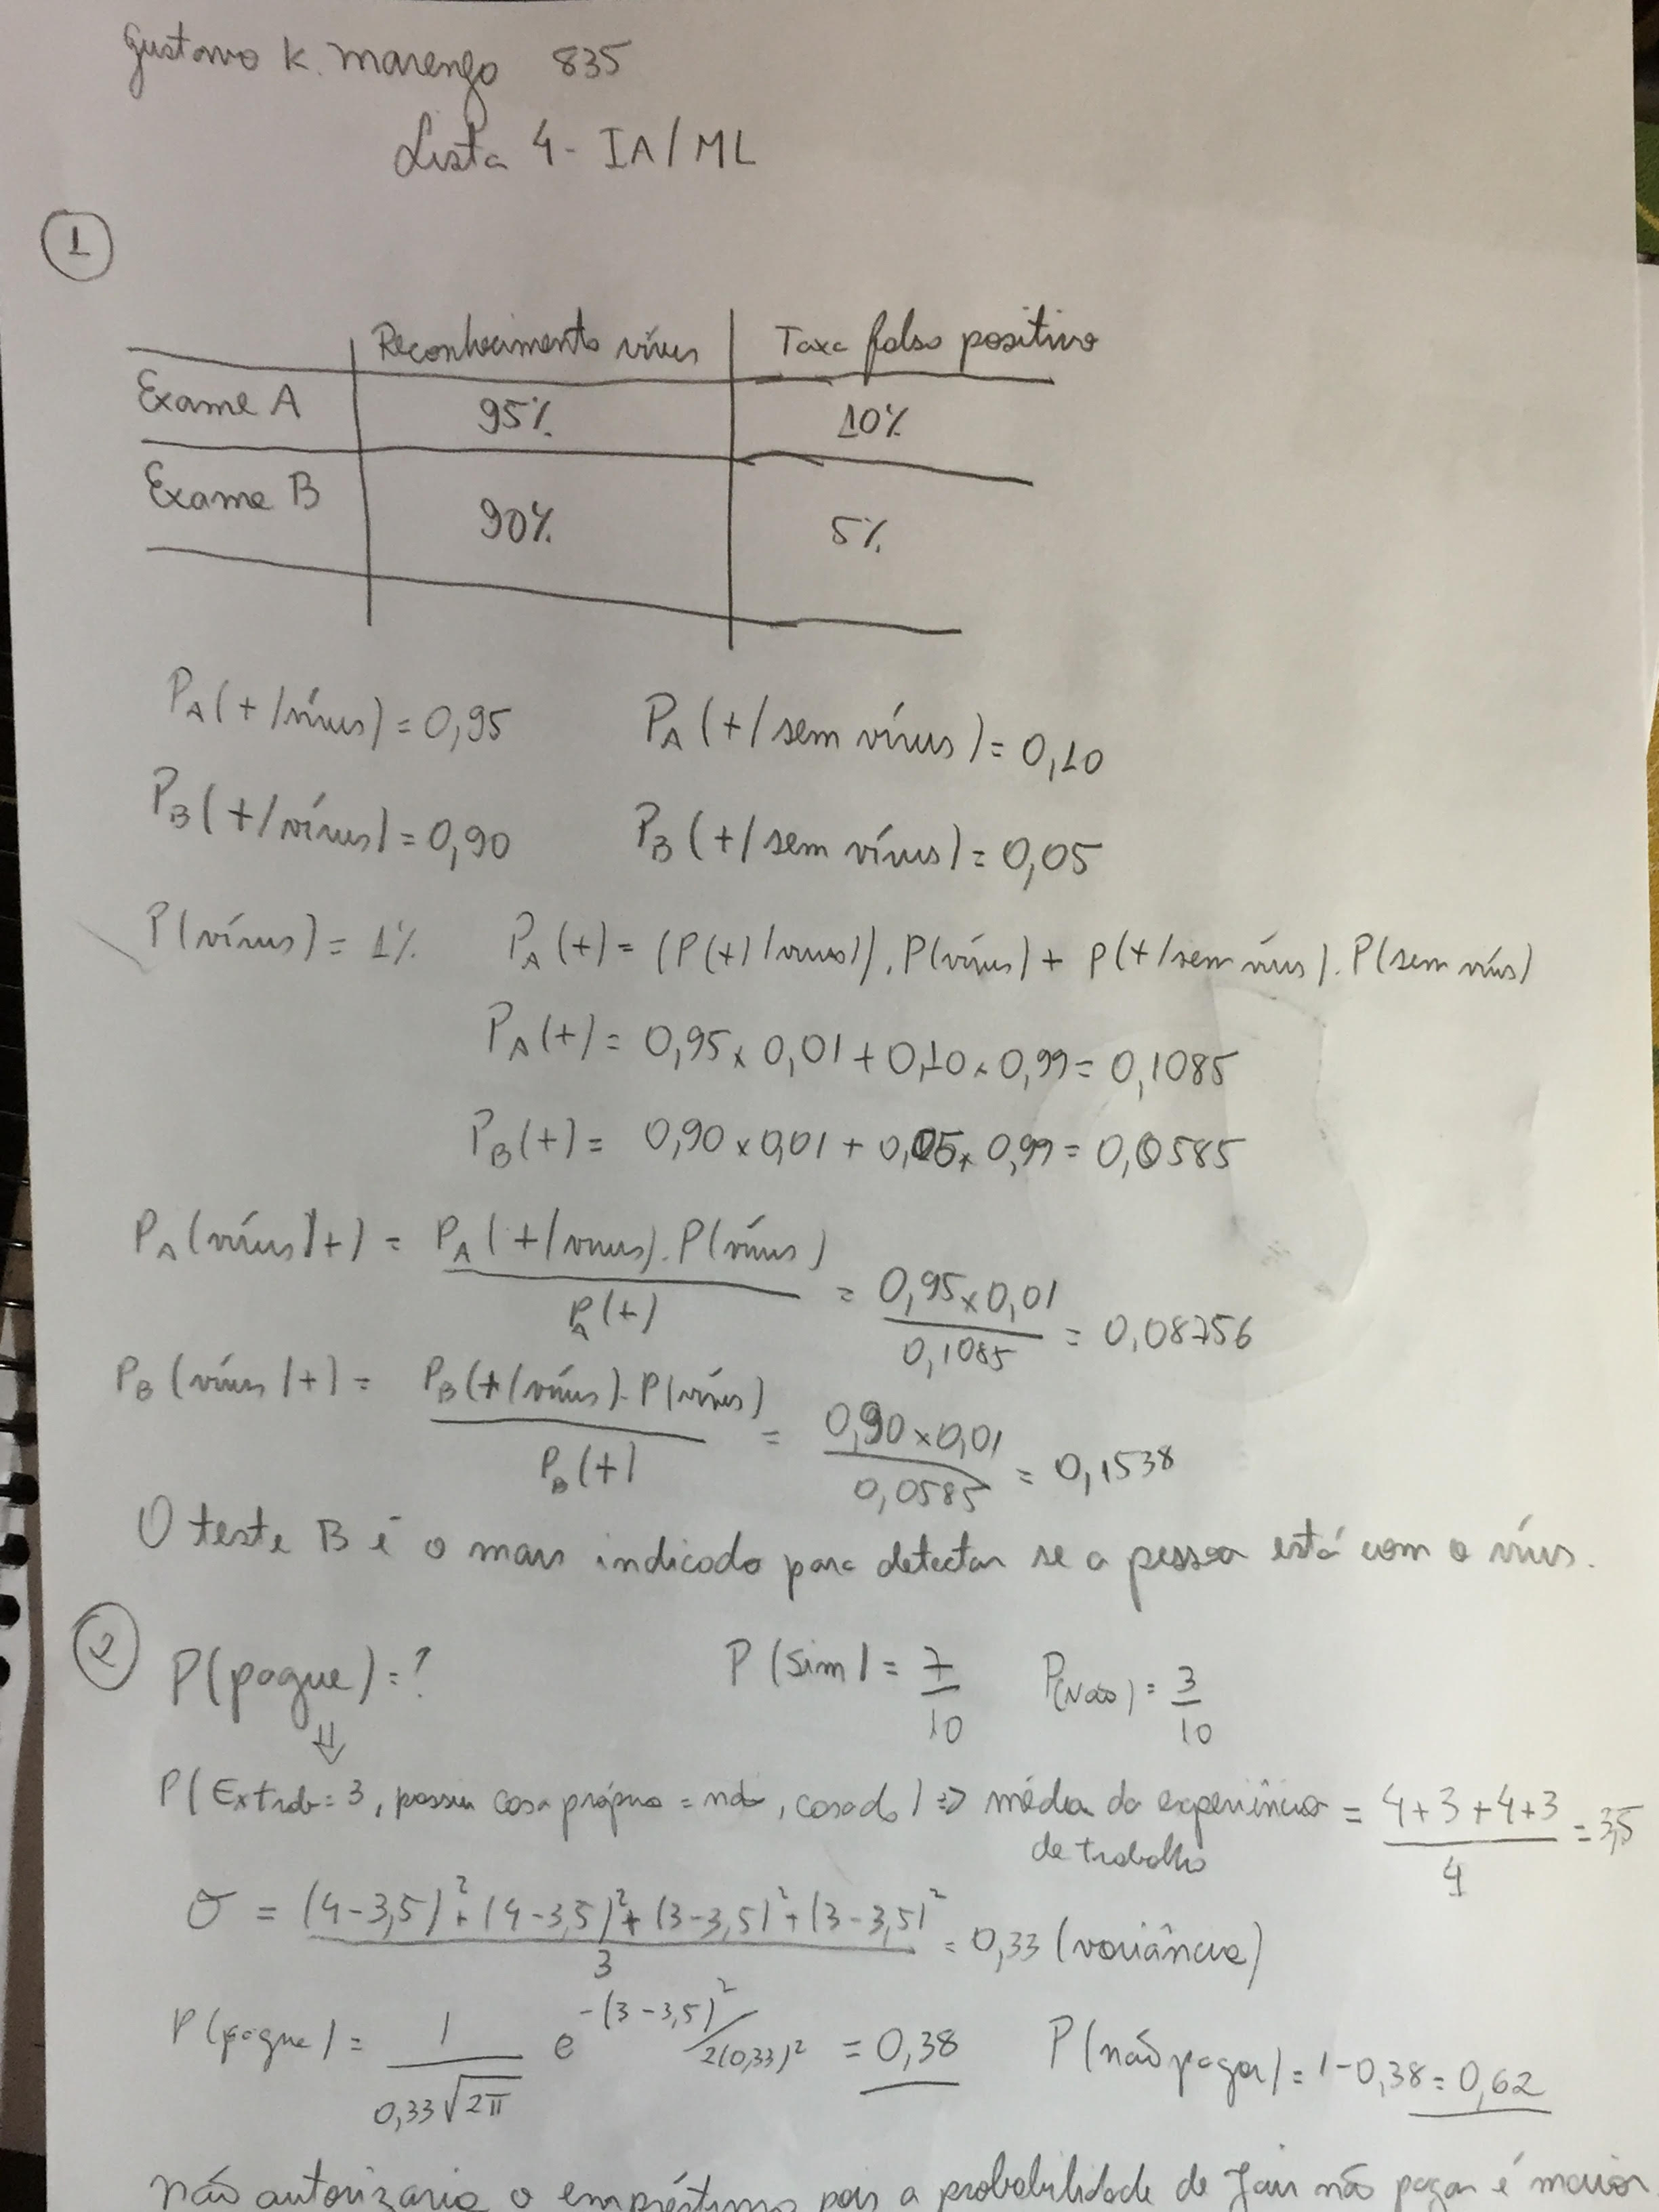 Gustavo K. Marengo 835
Lista 4 - IA/ML
1
Reconhecimento vírus Taxa falso positivo
Exame A 95% 10%
Exame B 90% 5%
P_A(+/vírus) = 0,95 P_A(+/sem vírus) = 0,10
P_B(+/vírus) = 0,90 P_B(+/sem vírus) = 0,05
P(vírus) = 1% P_A(+) = (P(+)/virus)).P(vírus) + p(+/sem vírus).P(sem vírus)
P_A(+) = 0,95 x 0,01 + 0,10 x 0,99 = 0,1085
P_B(+) = 0,90 x 0,01 + 0,05 x 0,99 = 0,0585
P_A(vírus/+) = P_A(+/virus).P(vírus) / P_A(+) = 0,95 x 0,01 / 0,1085 = 0,08756
P_B(vírus/+) = P_B(+/vírus).P(vírus) / P_B(+) = 0,90 x 0,01 / 0,0585 = 0,1538
O teste B é o mais indicado para detectar se a pessoa está com o vírus.
2 P(pague) = ? P(sim) = 7/10 P(Não) = 3/10
⇓
P(Extrab = 3, possui casa própria = não, casado) => média da experiência de trabalho = 4+3+4+3 / 4 = 3,5
σ = (4-3,5)² + (4-3,5)² + (3-3,5)² + (3-3,5)² / 3 = 0,33 (variância)
P(pague) = 1 / 0,33√2π e^-(3-3,5)²/2(0,33)² = 0,38 P(não pagar) = 1-0,38 = 0,62
Não autorizaria o empréstimo pois a probabilidade de Jair não pagar é maior